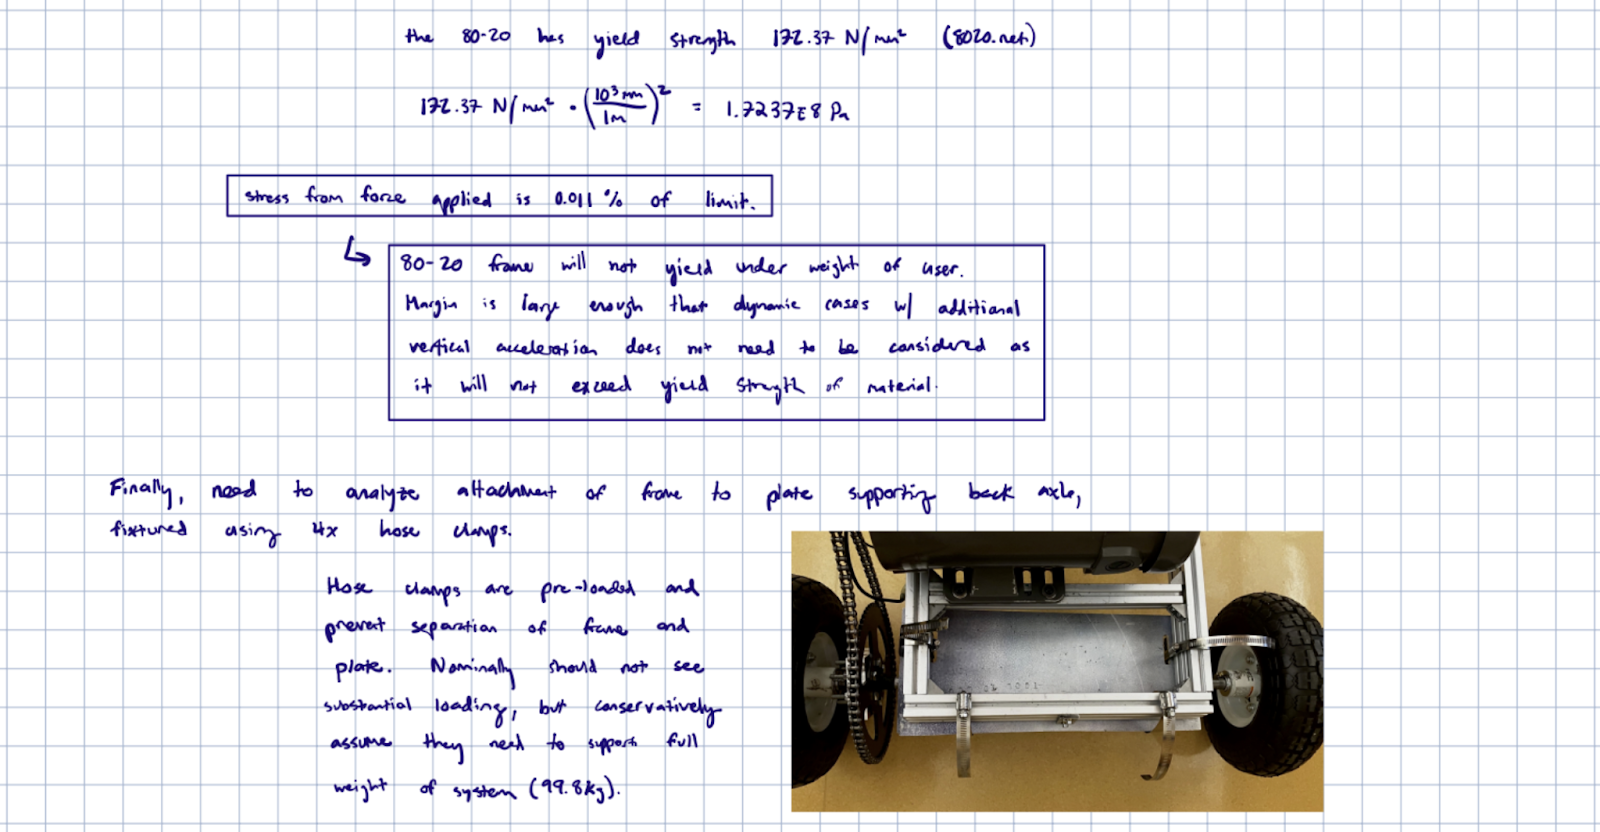 the 80-20 has yield strength 172.37 N/mm² (8020.net)
172.37 N/mm² · (10³ mm / 1m)² = 1.7237E8 Pa
stress from force applied is 0.011 % of limit.
80-20 frame will not yield under weight of user.
Margin is large enough that dynamic cases w/ additional
vertical acceleration does not need to be considered as
it will not exceed yield strength of material.
Finally, need to analyze attachment of frame to plate supporting back axle,
fixtured using 4x hose clamps.
Hose clamps are pre-loaded and
prevent separation of frame and
plate. Nominally should not see
substantial loading, but conservatively
assume they need to support full
weight of system (99.8kg).